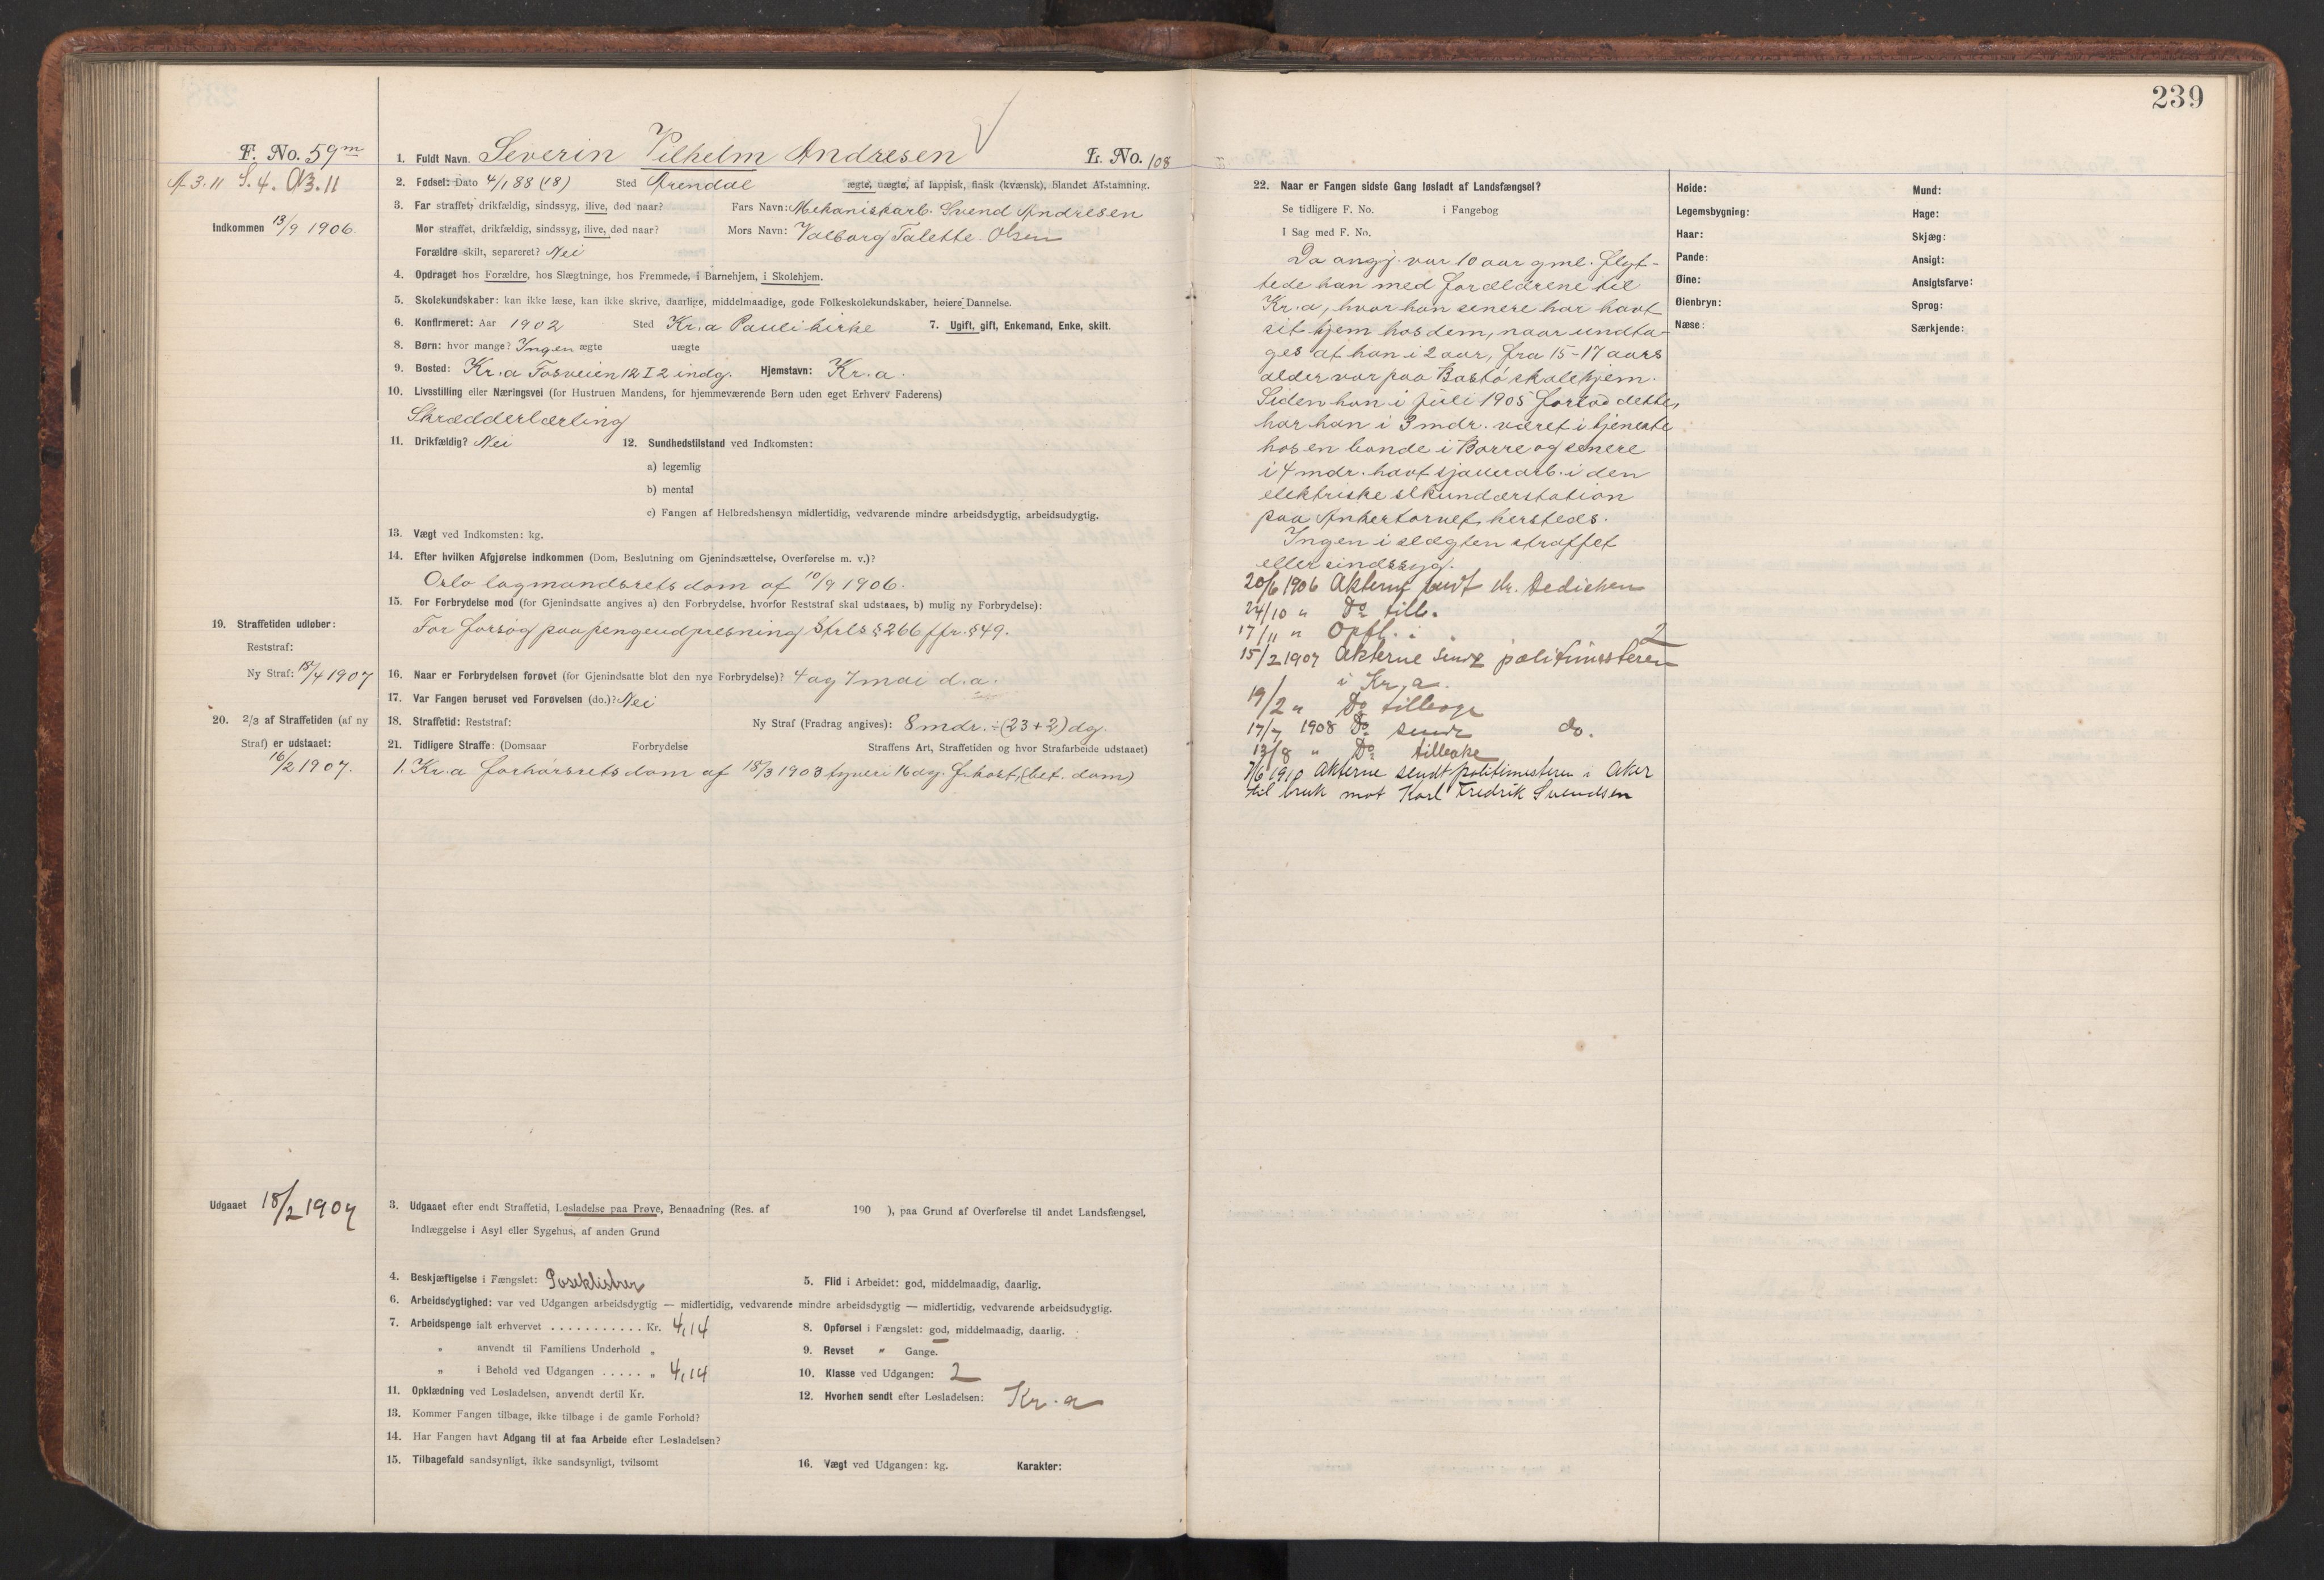 239
F. No. 59 m
A 3.11 S. 4. A 3.11
Indkommen 13/9 1906.
1. Fuldt Navn. Severin Vilhelm Andresen L. No. 108
2. Fødsel: Dato 4/1 88 (18) Sted Arendal ægte, uægte, af lappisk, finsk (kvænsk), blandet Afstamning.
3. Far straffet, drikfældig, sindssyg, ilive, død naar? Fars Navn: Mekaniskarb. Svend Andresen
Mor straffet, drikfældig, sindssyg, ilive, død naar? Mors Navn: Valborg Talette Olsen
Forældre skilt, separeret? Nei
4. Opdraget hos Forældre, hos Slægtninge, hos Fremmede, i Barnehjem, i Skolehjem.
5. Skolekundskaber: kan ikke læse, kan ikke skrive, daarlige, middelmaadige, gode Folkeskolekundskaber, høiere Dannelse.
6. Konfirmeret: Aar 1902 Sted Kr.a Pauli kirke 7. Ugift, gift, Enkemand, Enke, skilt.
8. Børn: hvor mange? Ingen ægte uægte
9. Bosted: Kr.a Fosveien 12 I 2 indg. Hjemstavn: Kr.a.
10. Livsstilling eller Næringsvei (for Hustruen Mandens, for hjemmeværende Børn uden eget Erhverv Faderens)
Skrædderlærling
11. Drikfældig? Nei 12. Sundhedstilstand ved Indkomsten:
a) legemlig
b) mental
c) Fangen af Helbredshensyn midlertidig, vedvarende mindre arbeidsdygtig, arbeidsudygtig.
13. Vægt ved Indkomsten: kg.
14. Efter hvilken Afgjørelse indkommen (Dom, Beslutning om Gjenindsættelse, Overførelse m. v.)?
Oslo lagmandsrets dom af 10/9 1906.
15. For Forbrydelse mod (for Gjenindsatte angives a) den Forbrydelse, hvorfor Reststraf skal udstaaes, b) mulig ny Forbrydelse):
For forsøg paa pengeudpresning Strls § 266 jfr. § 49.
19. Straffetiden udløber:
Reststraf:
Ny Straf: 18/4 1907
16. Naar er Forbrydelsen forøvet (for Gjenindsatte blot den nye Forbrydelse)? 4 og 7 mai d.a.
17. Var Fangen beruset ved Forøvelsen (do.)? Nei
20. 2/3 af Straffetiden (af ny Straf) er udstaaet: 16/2 1907.
18. Straffetid: Reststraf: Ny Straf (Fradrag angives): 8 mdr. ÷ (23 + 2) dg.
21. Tidligere Straffe: (Domsaar Forbrydelse Straffens Art, Straffetiden og hvor Strafarbeide udstaaet)
1. Kr.a forhørsrets dom af 18/3 1903 tyveri 16 dg. f. kost, (bet. dom)
Udgaaet 18/2 1907
3. Udgaaet efter endt Straffetid, Løsladelse paa Prøve, Benaadning (Res. af 190 ), paa Grund af Overførelse til andet Landsfængsel,
Indlæggelse i Asyl eller Sygehus, af anden Grund
4. Beskjæftigelse i Fængslet: Poseklistrer 5. Flid i Arbeidet: god, middelmaadig, daarlig.
6. Arbeidsdygtighed: var ved Udgangen arbeidsdygtig — midlertidig, vedvarende mindre arbeidsdygtig — midlertidig, vedvarende arbeidsudygtig.
7. Arbeidspenge ialt erhvervet ........... Kr. 4,14 8. Opførsel i Fængslet: god, middelmaadig, daarlig.
„ anvendt til Familiens Underhold „ 9. Revset „ Gange.
„ i Behold ved Udgangen ..... „ 4,14 10. Klasse ved Udgangen: 2
11. Opklædning ved Løsladelsen, anvendt dertil Kr. 12. Hvorhen sendt efter Løsladelsen: Kr.a
13. Kommer Fangen tilbage, ikke tilbage i de gamle Forhold?
14. Har Fangen havt Adgang til at faa Arbeide efter Løsladelsen?
15. Tilbagefald sandsynligt, ikke sandsynligt, tvilsomt 16. Vægt ved Udgangen: kg. Karakter:
22. Naar er Fangen sidste Gang løsladt af Landsfængsel?
Se tidligere F. No. i Fangebog
I Sag med F. No.
Da angj. var 10 aar gml. flyt-
tede han med forældrene til
Kr.a, hvor han senere har havt
sit hjem hos dem, naar undta-
ges at han i 2 aar, fra 15-17 aars
alder var paa Bastø skolehjem.
Siden han i juli 1905 forlod dette,
har han i 3 mdr. været i tjeneste
hos en bonde i Borre og senere
i 4 mdr. havt sjauerarb. i den
elektriske sekundærstation
paa Ankertorvet, hersteds.
Ingen i slægten straffet
eller sindssyg.
20/6 1906 Akterne sendt dr. Dedichen
24/10 " Do tilb.
17/11 " Opfl. i 2
15/2 1907 Akterne sendt politimesteren
i Kr.a.
19/2 " Do tilbage
17/7 1908 Do sendt do.
13/8 " Do tilbake
7/6 1910 Akterne sendt politimesteren i Aker
til bruk mot Karl Fredrik Svendsen
Høide: Mund:
Legemsbygning: Hage:
Haar: Skjæg:
Pande: Ansigt:
Øine: Ansigtsfarve:
Øienbryn: Sprog:
Næse: Særkjende: